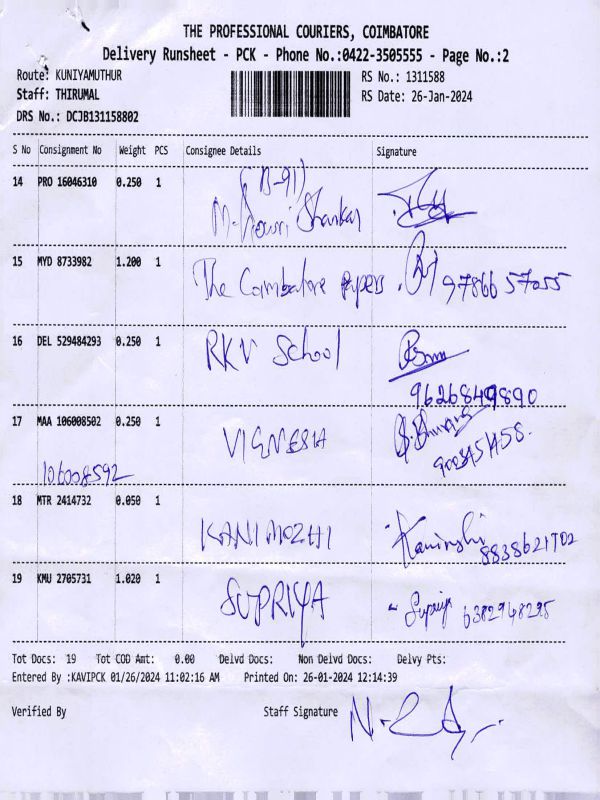 THE PROFESSIONAL COURIERS, COIMBATORE
Delivery Runsheet - PCK - Phone No.:0422-3505555 - Page No.:2
Route: KUNIYAMUTHUR RS No.: 1311588
Staff: THIRUMAL RS Date: 26-Jan-2024
DRS No.: DCJB131158802
S No Consignment No Weight PCS Consignee Details Signature
14 PRO 16046310 0.250 1 (B-91)
M. Gowri Shankar
15 MYD 8733982 1.200 1 The Coimbatore Papers 97866 57055
16 DEL 529484293 0.250 1 RKV School
9626849890
17 MAA 106008502 0.250 1 VIGNESH
106008592
18 MTR 2414732 0.050 1 KANIMOZHI 8838621702
19 KMU 2705731 1.020 1 SUPRIYA Supriya 6382948295
Tot Docs: 19 Tot COD Amt: 0.00 Delvd Docs: Non Delvd Docs: Delvy Pts:
Entered By :KAVIPCK 01/26/2024 11:02:16 AM Printed On: 26-01-2024 12:14:39
Verified By Staff Signature